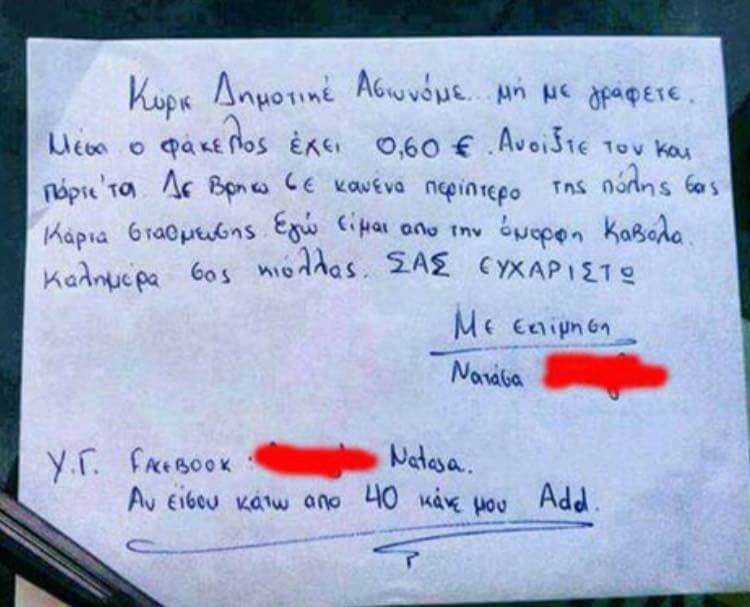 Κύριε Δημοτικέ Αστυνόμε... μή με γράφετε.
Μέσα ο φάκελος έχει 0,60 €. Ανοίξτε τον και
πάρτε'τα. Δε βρήκα σε κανένα περίπτερο της πόλης σας
Κάρτα στάθμευσης. Εγώ είμαι απο την όμορφη Καβάλα.
Καλημέρα σας κιόλλας. ΣΑΣ ΕΥΧΑΡΙΣΤΩ
Με εκτίμηση
Νατάσα
Υ.Γ. FACEBOOK : Natasa.
Αν είσαι κάτω απο 40 κάνε μου Add.